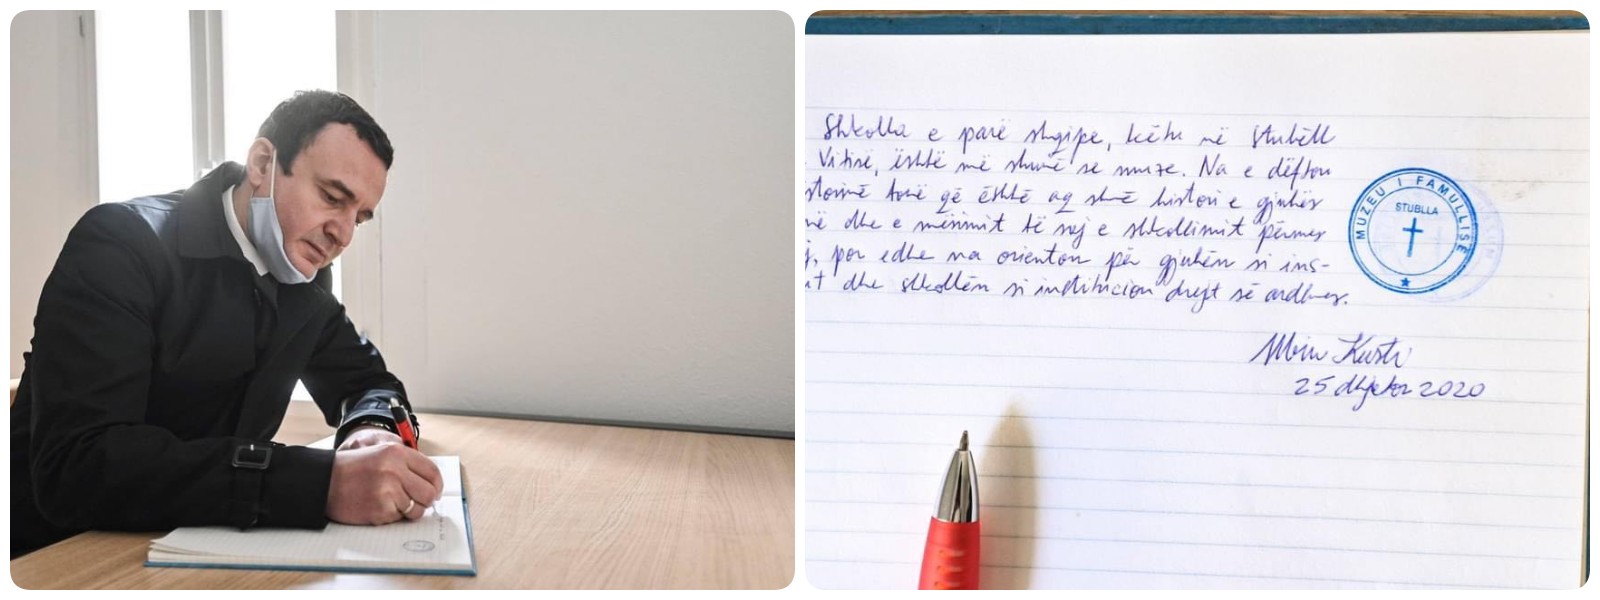 Shkolla e parë shqipe, këtu në Stubëll
Vitisë, është më shumë se muze. Na e dëfton
historinë tonë që është aq shë histori e gjuhës
dhe e mësimit të saj e shkollimit përmes
por edhe na orienton për gjuhën si ins-
dhe shkollën si institucion drejt së ardhmes.
Albin Kurti
25 dhjetor 2020
MUZEU I FAMULLISË
STUBLLA